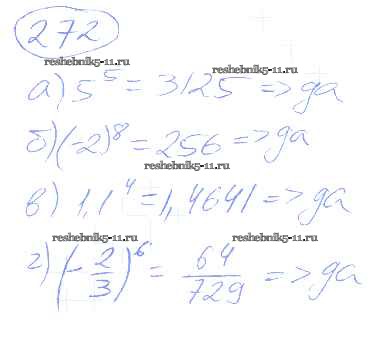 272
reshebnik5-11.ru
reshebnik5-11.ru
а) 5⁵ = 3125 => да
б) (-2)⁸ = 256 => да
reshebnik5-11.ru
в) 1,1⁴ = 1,4641 => да
reshebnik5-11.ru
reshebnik5-11.ru
г) (-2/3)⁶ = 64/729 => да